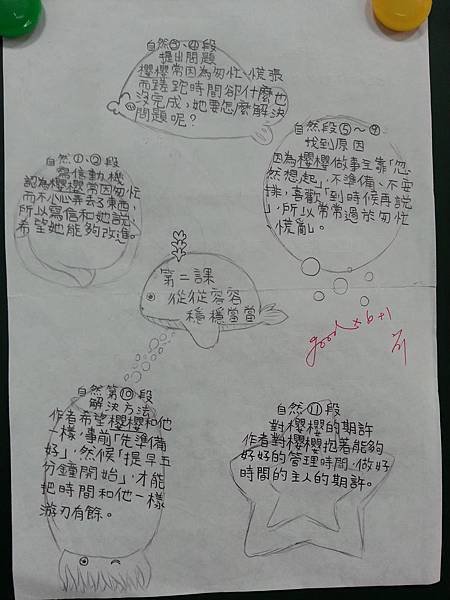 第二課
從從容容
穩穩當當
自然①、②段
寫信動機
認為櫻櫻常因匆忙
而不小心弄丟了東西,
所以寫信和她說,
希望她能夠改進。
自然③、④段
提出問題
櫻櫻常因為匆忙、慌張
而蹉跎時間卻什麼也
沒完成,她要怎麼解決
問題呢?
自然段⑤~⑨
找到原因
因為櫻櫻做事全靠「忽
然想起」,不準備、不安
排,喜歡「到時候再說
」,所以常常過於匆忙
、慌亂。
自然第⑩段
解決方法
作者希望櫻櫻和他
一樣,事前「先準備
好」,然候「提早五
分鐘開始」,才能
把時間和他一樣
游刃有餘。
自然⑪段
對櫻櫻的期許
作者對櫻櫻抱著能夠
好好的管理時間,做好
時間的主人的期許。
good x6+1